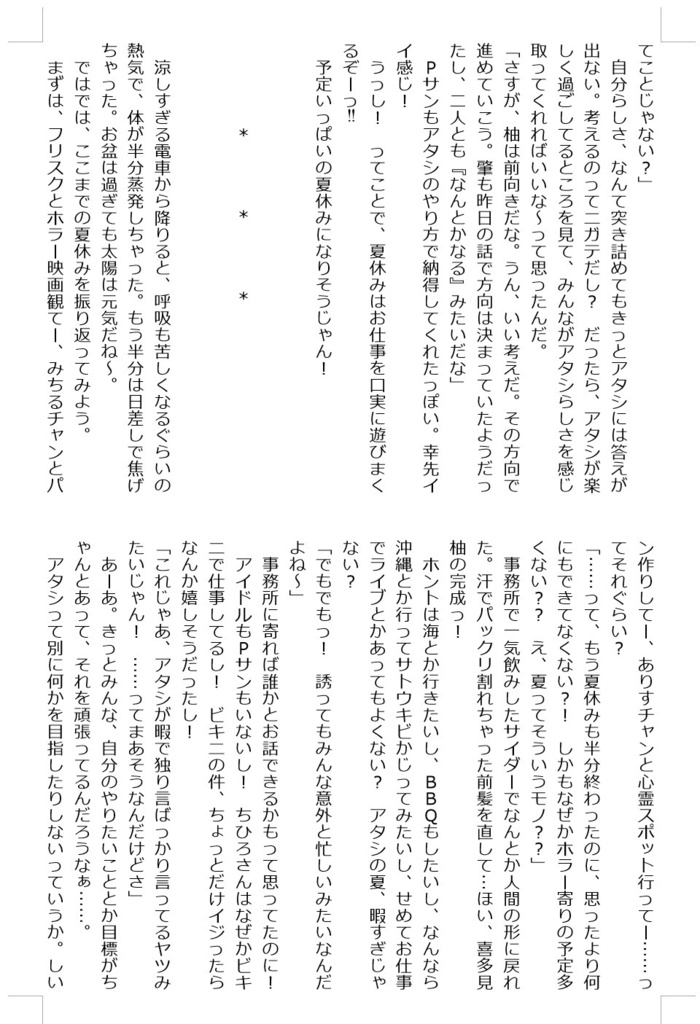 てことじゃない？」
　自分らしさ、なんて突き詰めてもきっとアタシには答えが
出ない。考えるのってニガテだし？　だったら、アタシが楽
しく過ごしてるところを見て、みんながアタシらしさを感じ
取ってくれればいいな〜って思ったんだ。
「さすが、柚は前向きだな。うん、いい考えだ。その方向で
進めていこう。肇も昨日の話で方向は決まっていたようだっ
たし、二人とも『なんとかなる』みたいだな」
　Pサンもアタシのやり方で納得してくれたっぽい。幸先イ
イ感じ！
　うっし！　ってことで、夏休みはお仕事を口実に遊びまく
るぞーっ!!
　予定いっぱいの夏休みになりそうじゃん！
＊　＊　＊
　涼しすぎる電車から降りると、呼吸も苦しくなるぐらいの
熱気で、体が半分蒸発しちゃった。もう半分は日差しで焦げ
ちゃった。お盆は過ぎても太陽は元気だね〜。
　ではでは、ここまでの夏休みを振り返ってみよう。
　まずは、フリスクとホラー映画観てー、みちるチャンとパ
ン作りしてー、ありすチャンと心霊スポット行ってー……っ
てそれぐらい？
「……って、もう夏休みも半分終わったのに、思ったより何
にもできてなくない？！　しかもなぜかホラー寄りの予定多
くない？？　え、夏ってそういうモノ？？」
　事務所で一気飲みしたサイダーでなんとか人間の形に戻れ
た。汗でパックリ割れちゃった前髪を直して…ほい、喜多見
柚の完成っ！
　ホントは海とか行きたいし、BBQもしたいし、なんなら
沖縄とか行ってサトウキビかじってみたいし、せめてお仕事
でライブとかあってもよくない？　アタシの夏、暇すぎじゃ
ない？
「でもでもっ！　誘ってもみんな意外と忙しいみたいなんだ
よね〜」
　事務所に寄れば誰かとお話できるかもって思ってたのに！
　アイドルもPサンもいないし！　ちひろさんはなぜかビキ
ニで仕事してるし！　ビキニの件、ちょっとだけイジったら
なんか嬉しそうだったし！
「これじゃあ、アタシが暇で独り言ばっかり言ってるヤツみ
たいじゃん！　……ってまあそうなんだけどさ」
　あーあ。きっとみんな、自分のやりたいこととか目標がち
ゃんとあって、それを頑張ってるんだろうなぁ……。
　アタシって別に何かを目指したりしないっていうか。しい